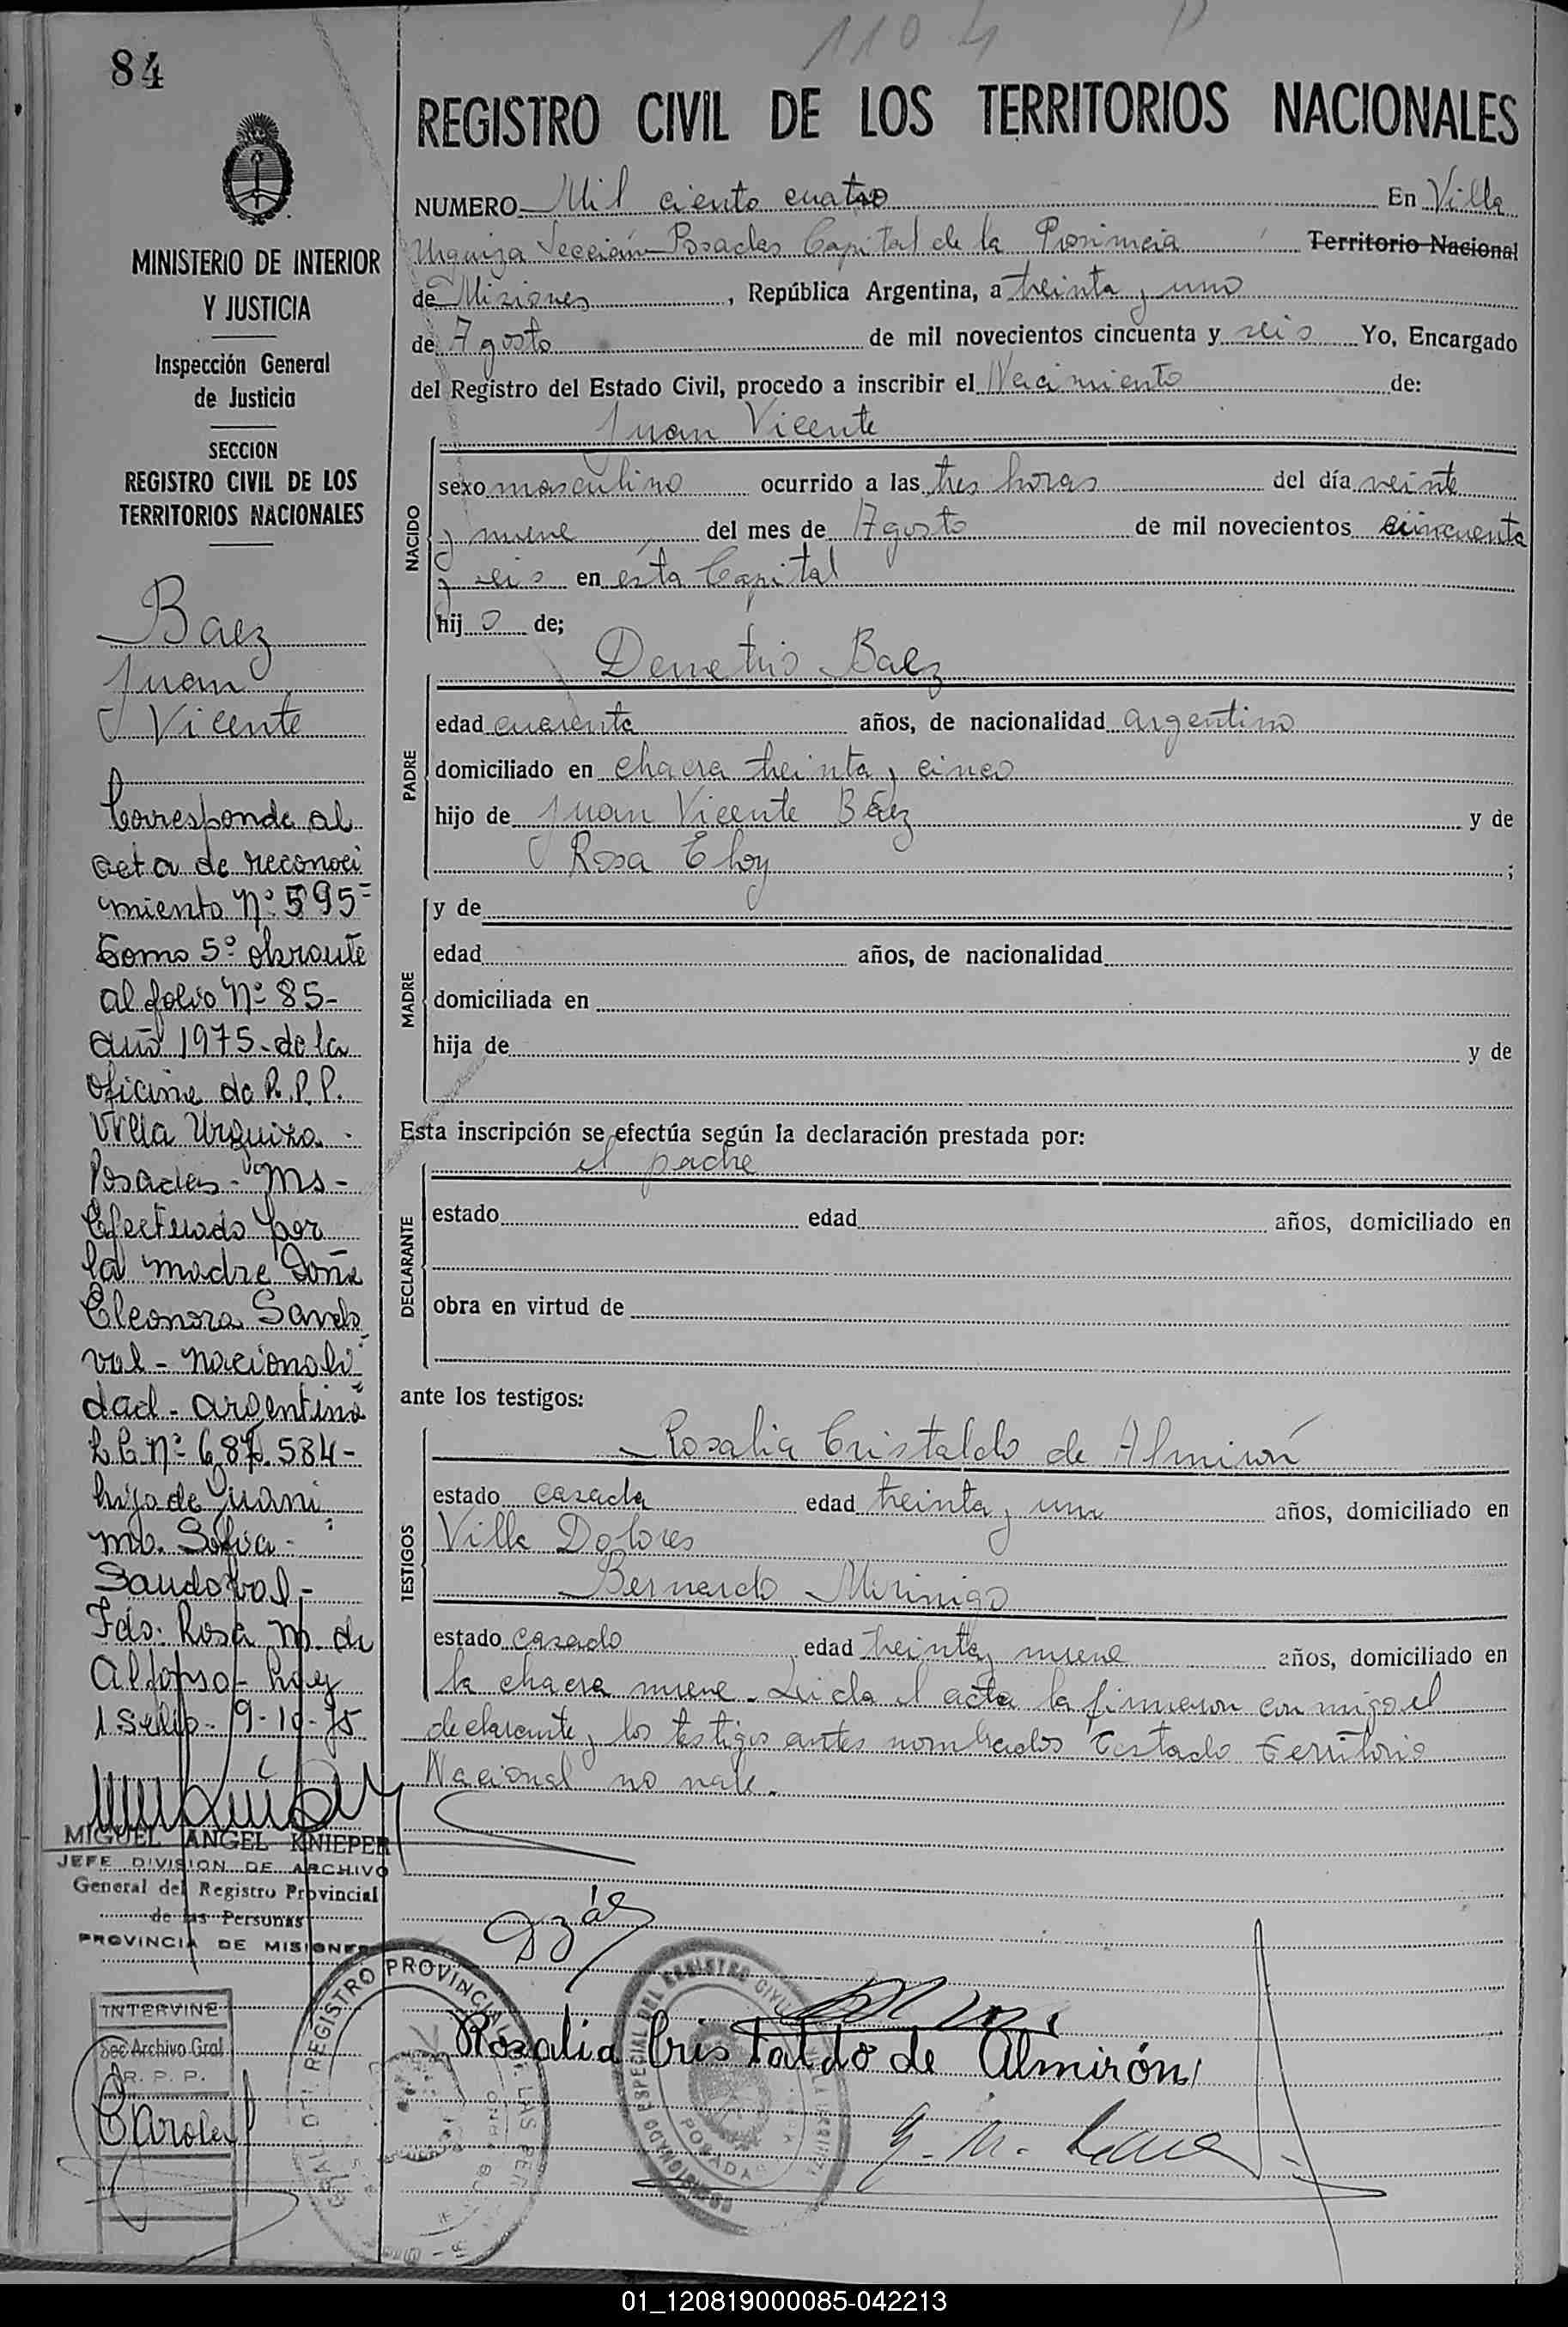 1104
84
REGISTRO CIVIL DE LOS TERRITORIOS NACIONALES
MINISTERIO DE INTERIOR
Y JUSTICIA
Inspección General
de Justicia
SECCION
REGISTRO CIVIL DE LOS
TERRITORIOS NACIONALES
Baez
Juan
Vicente
Corresponde al
acta de reconoci
miento Nº 595-
Tomo 5º obrante
al folio Nº 85-
año 1975- de la
oficina de R.P.P.
Villa Urquiza -
Posadas - Ms -
Efectuado por
la madre Doña
Eleonora Sando
val - nacionali
dad - argentina
L.C. Nº 6.87.584-
hija de Juani
mo. Sofia -
Sandoval -
Fdo: Rosa M. de
Alfonso - hay
1 sello - 9-10-75
MIGUEL ANGEL KNIEPER
JEFE DIVISION DE ARCHIVO
General del Registro Provincial
de las Personas
PROVINCIA DE MISIONES
INTERVINE
Sec Archivo Gral
R. P. P.
NUMERO Mil ciento cuatro En Villa
Urquiza Sección Posadas Capital de la Provincia Territorio Nacional
de Misiones, República Argentina, a treinta y uno
de Agosto de mil novecientos cincuenta y seis Yo, Encargado
del Registro del Estado Civil, procedo a inscribir el Nacimiento de:
Juan Vicente
NACIDO
sexo masculino ocurrido a las tres horas del día veinte
y nueve del mes de Agosto de mil novecientos cincuenta
y seis en esta Capital
hijo de;
Demetrio Baez
PADRE
edad cuarenta años, de nacionalidad argentino
domiciliado en chacra treinta y cinco
hijo de Juan Vicente Báez y de
Rosa Eloy ;
MADRE
y de
edad años, de nacionalidad
domiciliada en
hija de y de
Esta inscripción se efectúa según la declaración prestada por:
el padre
DECLARANTE
estado edad años, domiciliado en
obra en virtud de
ante los testigos:
TESTIGOS
Rosalia Cristaldo de Almirón
estado casada edad treinta y una años, domiciliado en
Villa Dolores
Bernardo Mirinigo
estado casado edad treinta y nueve años, domiciliado en
la chacra nueve. Leida el acta la firmaron conmigo el
declarante y los testigos antes nombrados Testado Territorio
Nacional no vale.
Rosalia Cristaldo de Almirón
REGISTRO PROVINCIAL
POSADAS
01_120819000085-042213